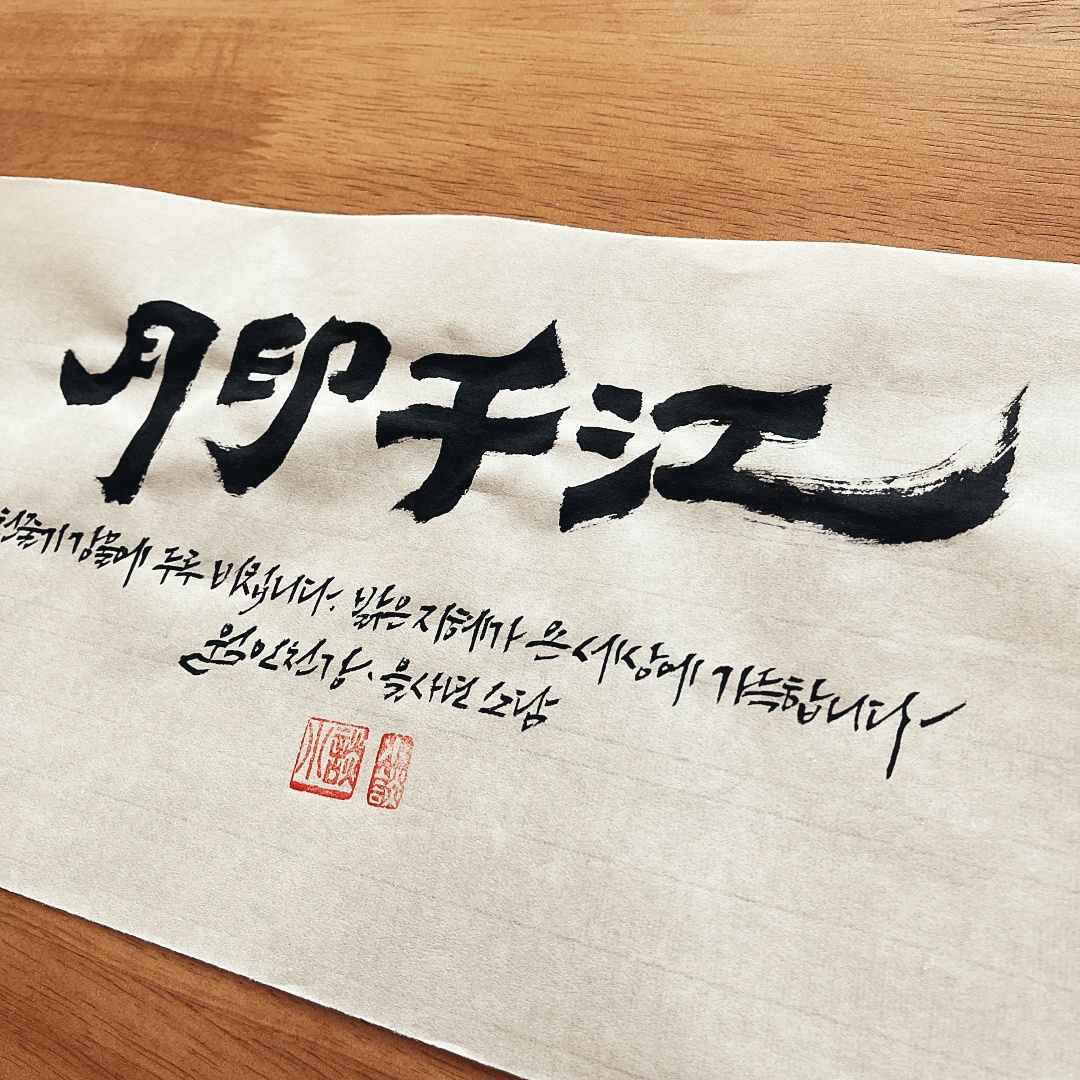 月印千江
천줄기 강물에 두루 비칩니다. 밝은 지혜가 온 세상에 가득합니다
월인천강·을사년 소담
小談